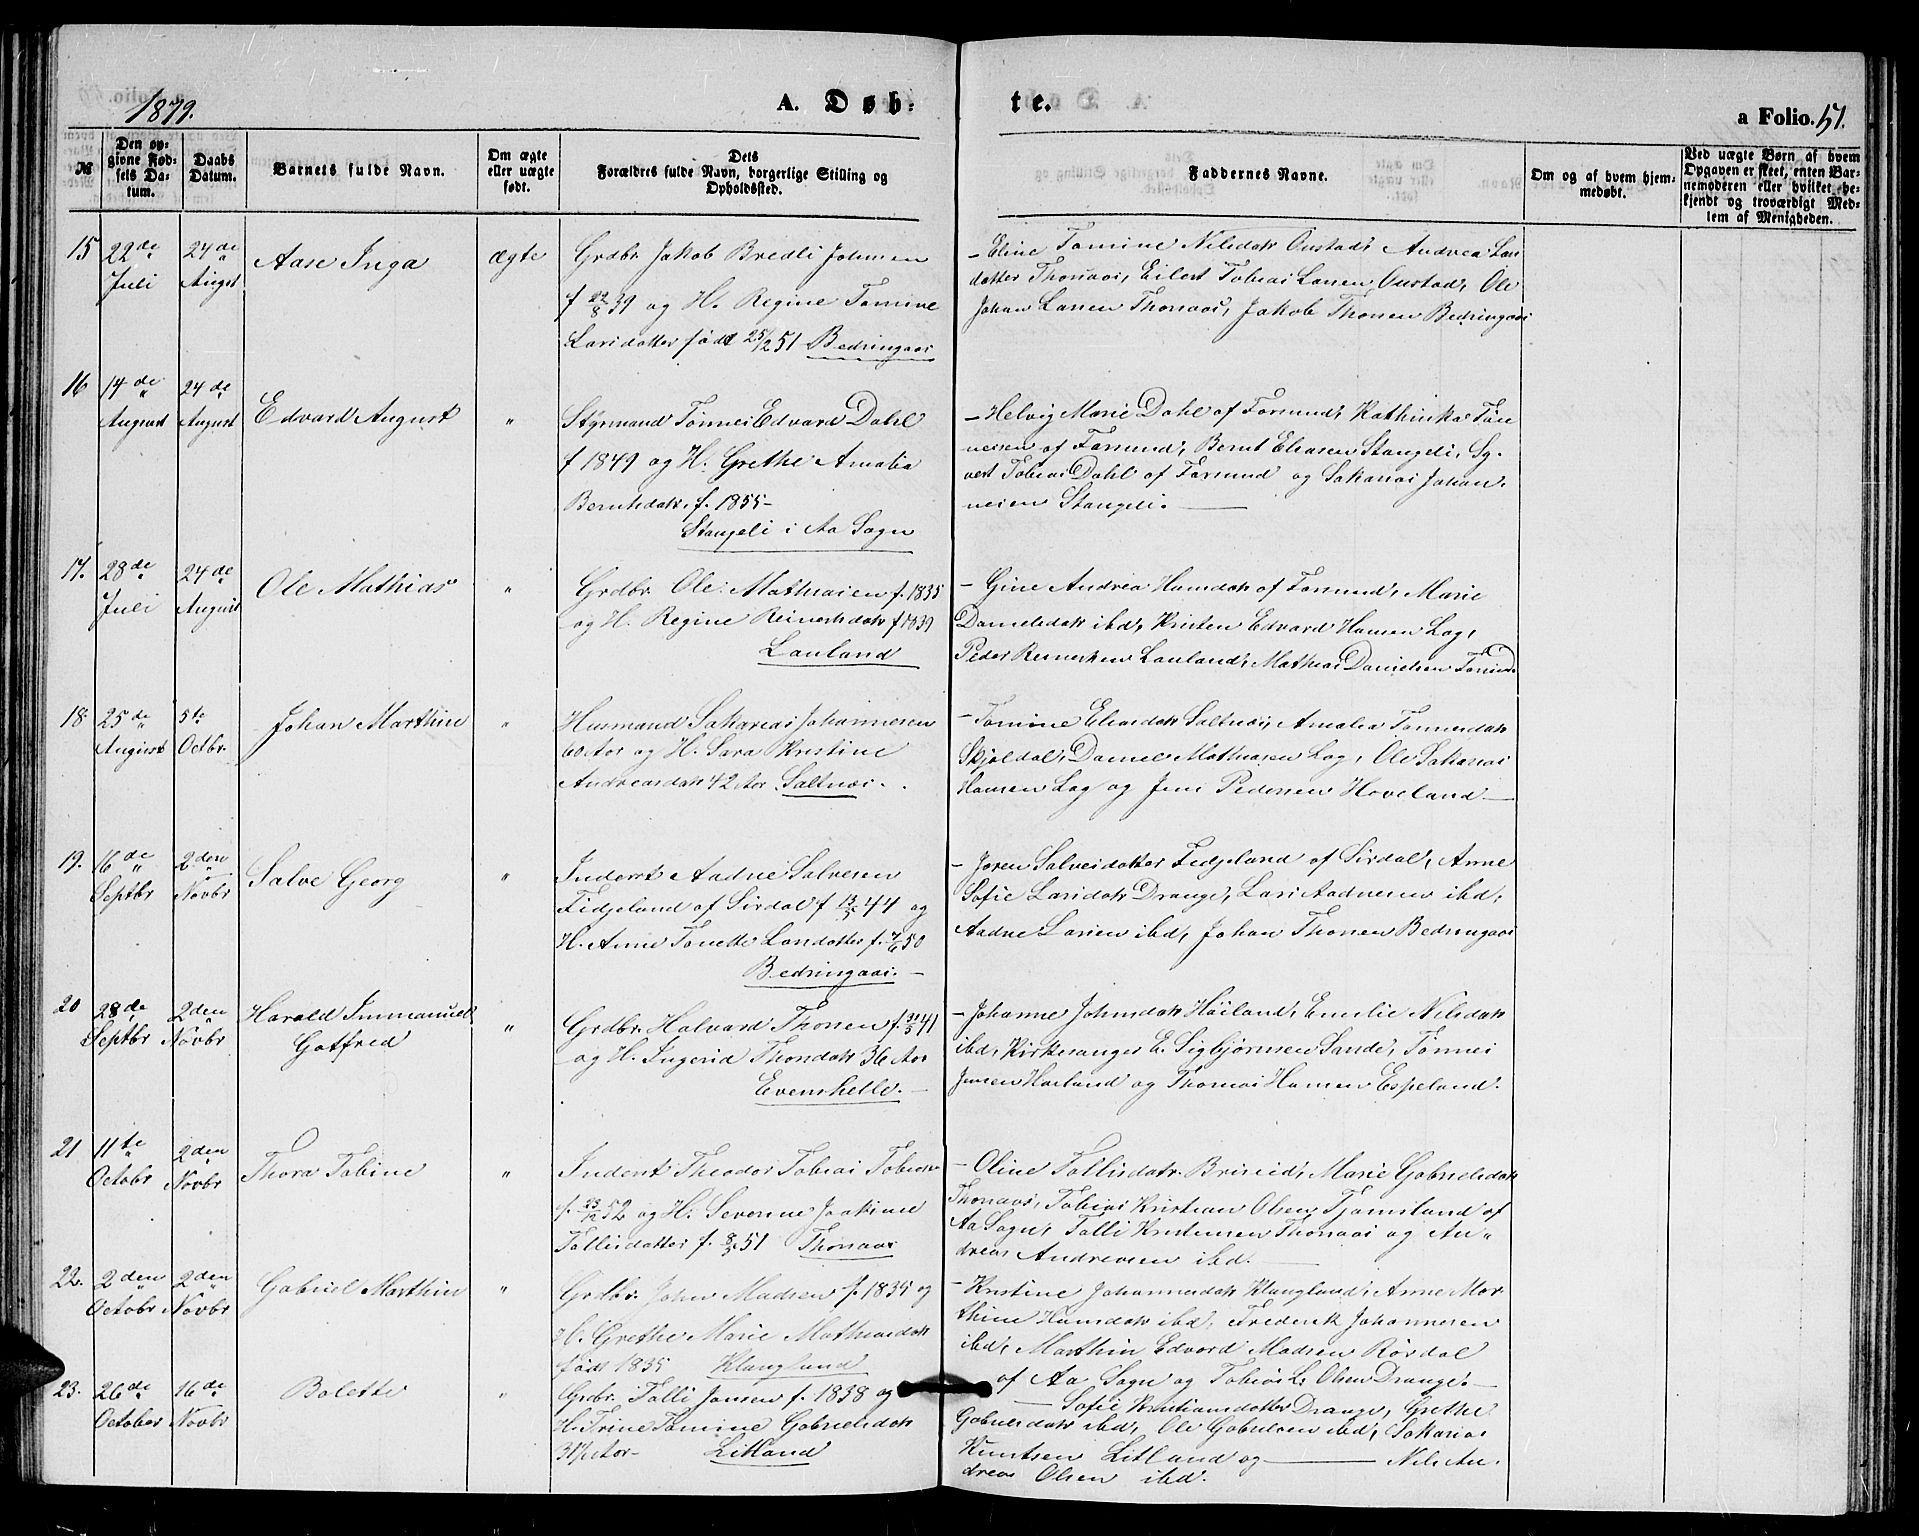 1879.
A. Døb-
te.
a Folio. 51.
№
Den op-
givne Fød-
sels Da-
tum.
Daabs
Datum.
Barnets fulde Navn.
Om ægte
eller uægte
født.
Dets
Forældres fulde Navn, borgerlige Stilling og
Opholdssted.
Faddernes Navne.
Om og af hvem hjem-
medøbt.
Ved uægte Børn af hvem
Opgaven er skeet, enten Bar-
nemoderen eller hvilket be-
kjendt og troværdigt Med-
lem af Menigheden.
15
22de
Juli
24de
August
Aase Inga
ægte
Grdbr. Jakob Bredli Johnsen
f 22/8 39 og H. Regine Tomine
Larsdatter født 25/12 51 Bedringaas
- Eline Tomine Nilsdatr Oustad, Andrea Lars
datter Thonaas, Eilert Tobias Larsen Oustad, Ole
Johan Larsen Thonaas, Jakob Thorsen Bedringaas
16
14de
August
24de
August
Edvard August
"
Styrmand Tønnes Edvard Dahl
f 1849 og H. Grethe Amalia
Berntsdatr. f. 1855-
Stangeli i Aa Sogn
- Helvig Marie Dahl af Farsund, Kathinka Tøn
nesen af Farsund, Bernt Eliasen Stangeli, Sy-
vert Tobias Dahl af Farsund og Sakarias Johan-
nesen Stangeli.
17.
28de
Juli
24de
August
Ole Mathias
"
Grdbr. Ole Mathiasen f. 1835
og H. Regine Reinertsdatr f 1839
Lauland
- Gine Andrea Hansdatr af Farsund, Marie
Danielsdatr ibd, Kristen Edvard Hansen Log,
Peder Reinertsen Lauland, Mathias Danielsen Farsund
18.
25de
August
5te
Octbr.
Johan Marthin
"
Husmand Sakarias Johannesen
60 Aar og H. Sara Kristine
Andreasdatr 42 Aar. Saltnæs.
- Tomine Eliasdatr Saltnæs, Amalia Tønnesdatr
Skjoldal, Daniel Mathiasen Log, Ole Sakarias
Hansen Log og Jens Pedersen Hoveland
19.
16de
Septbr
2den
Novbr
Salve Georg
"
Inderst Aadne Salvesen
Fidjeland af Sirdal f 13/5 44 og
H. Anne Tonette Larsdatter f. 7/6 50
Bedringaas.
- Joren Salvesdatter Fidjeland af Sirdal, Anne
Sofie Larsdatr Drange, Lars Aadnesen ibd,
Aadne Larsen ibd, Johan Thorsen Bedringaas
20
28de
Septbr
2den
Novbr
Harald Immanuel
Gotfred
"
Grdbr. Halvard Thorsen f. 31/5 41
og H. Ingerid Thorsdatr 36 Aar
Evenshelle.
- Johanne Johnsdatr Høiland, Emilie Nilsdatr
ibd, Kirkesanger E. Sigbjørnsen Sande, Tønnes
Jensen Høiland og Thomas Hansen Espeland.
21
11te
Octobr
2den
Novbr
Thora Tobine
"
Inderst Theodor Tobias Tobiasen
f. 23/12 52 og H. Severine Joakime
Tallisdatter f. 8/3 51 Thonaas
- Oline Tallisdatr. Briseid, Marie Gabrielsdatr
Thonaas, Tobias Kristian Olsen Tjomsland af
Aa Sogn, Talli Kristensen Thonaas og An-
dreas Andreasen ibd.
22.
2den
Octobr
2den
Novbr
Gabriel Marthin
"
Grdbr. John Madsen f. 1835 og
H. Grethe Marie Mathiasdatr
født 1835 Klungland
- Kristine Johannesdatr Klungland, Anne Mar
thine Hansdatr ibd, Frederik Johannesen
ibd, Marthin Edvard Madsen Rørdal
af Aa Sogn og Tobias L. Olsen Drange.
23.
26de
October
16de
Novbr
Bolette
"
Grdbr. Talli Jansen f. 1838 og
H. Trine Tomine Gabrielsdatr
31½ Aar- Litland
- Sofie Kristiansdatter Drange, Grethe
Gabrielsdatr ibd, Ole Gabrielsen ibd, Sakarias
Knutsen Litland og Nils An-
dreas Olsen ibd.